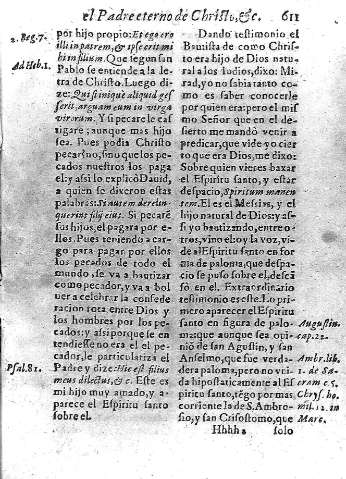 el Padre eterno de Christo, &c. 611
2. Reg. 7.
Ad Heb. 1.
Psal. 81.
por hijo proprio: Et ego ero
illi in patrem, & ipse erit mi
hi in filium. Que segun san
Pablo se entiende a la le
tra de Christo. Luego di
ze: Qui si inique aliquid ges
serit, arguam eum in virga
virorum. Y si pecare le cas
tigarè; aunque mas hijo
sea. Pues podia Christo
pecar? no, sino que los pe
cados nuestros los paga
el; assi lo explicò Dauid,
a quien se dixeron estas
palabras: Si autem dereli
querint filij eius. Si pecarè
sus hijos, el pagara por e-
llos. Pues teniendo a car-
go para pagar por ellos
los pecados de todo el
mundo, se va a bautizar
como pecador, y va a bol
uer a celebrar la confede
racion rota entre Dios y
los hombres por los pe-
cados; y assi porque se en
tendiesse no era el el pe-
cador, le particulariza el
Padre y dize: Hic est filius
meus dilectus, &c. Este es
mi hijo muy amado, y a-
parece el Espiritu santo
sobre el.
Dando testimonio el
Bautista de como Chris-
to era hijo de Dios natu-
ral a los Iudios, dixo: Mi
rad, yo no sabia tanto co-
mo es saber conocerle
por quien era: pero el mis
mo Señor que en el de-
sierto me mandò venir a
predicar, que vide yo cier
to que era Dios, me dixo:
Sobre quien vieres baxar
el Espiritu santo, y estar
despacio, Spiritum manen
tem. El es el Messias, y el
hijo natural de Dios: y as-
si yo bautizando, entre o-
tros, vino el: oy la voz, vi-
de al Espiritu santo en for
ma de paloma, que despa-
cio se puso sobre el, descã
sò en el. Extraordinario
testimonio es este. Lo pri-
mero aparecer el Espiritu
santo en figura de palo-
ma: que aunque sea opi-
niõ de san Agustin, y san
Anselmo, que fue verda-
dera paloma, pero no vni-
da hipostaticamente al Es
piritu santo, tẽgo por mas
corriente la de S. Ambro-
sio, y san Crisostomo, que
Augustin.
cap. 22.
Ambr. lib.
1. de Sa-
cram c. 5.
Chrys. ho
mil. 12. in
Marc.
Hhhh 2 solo